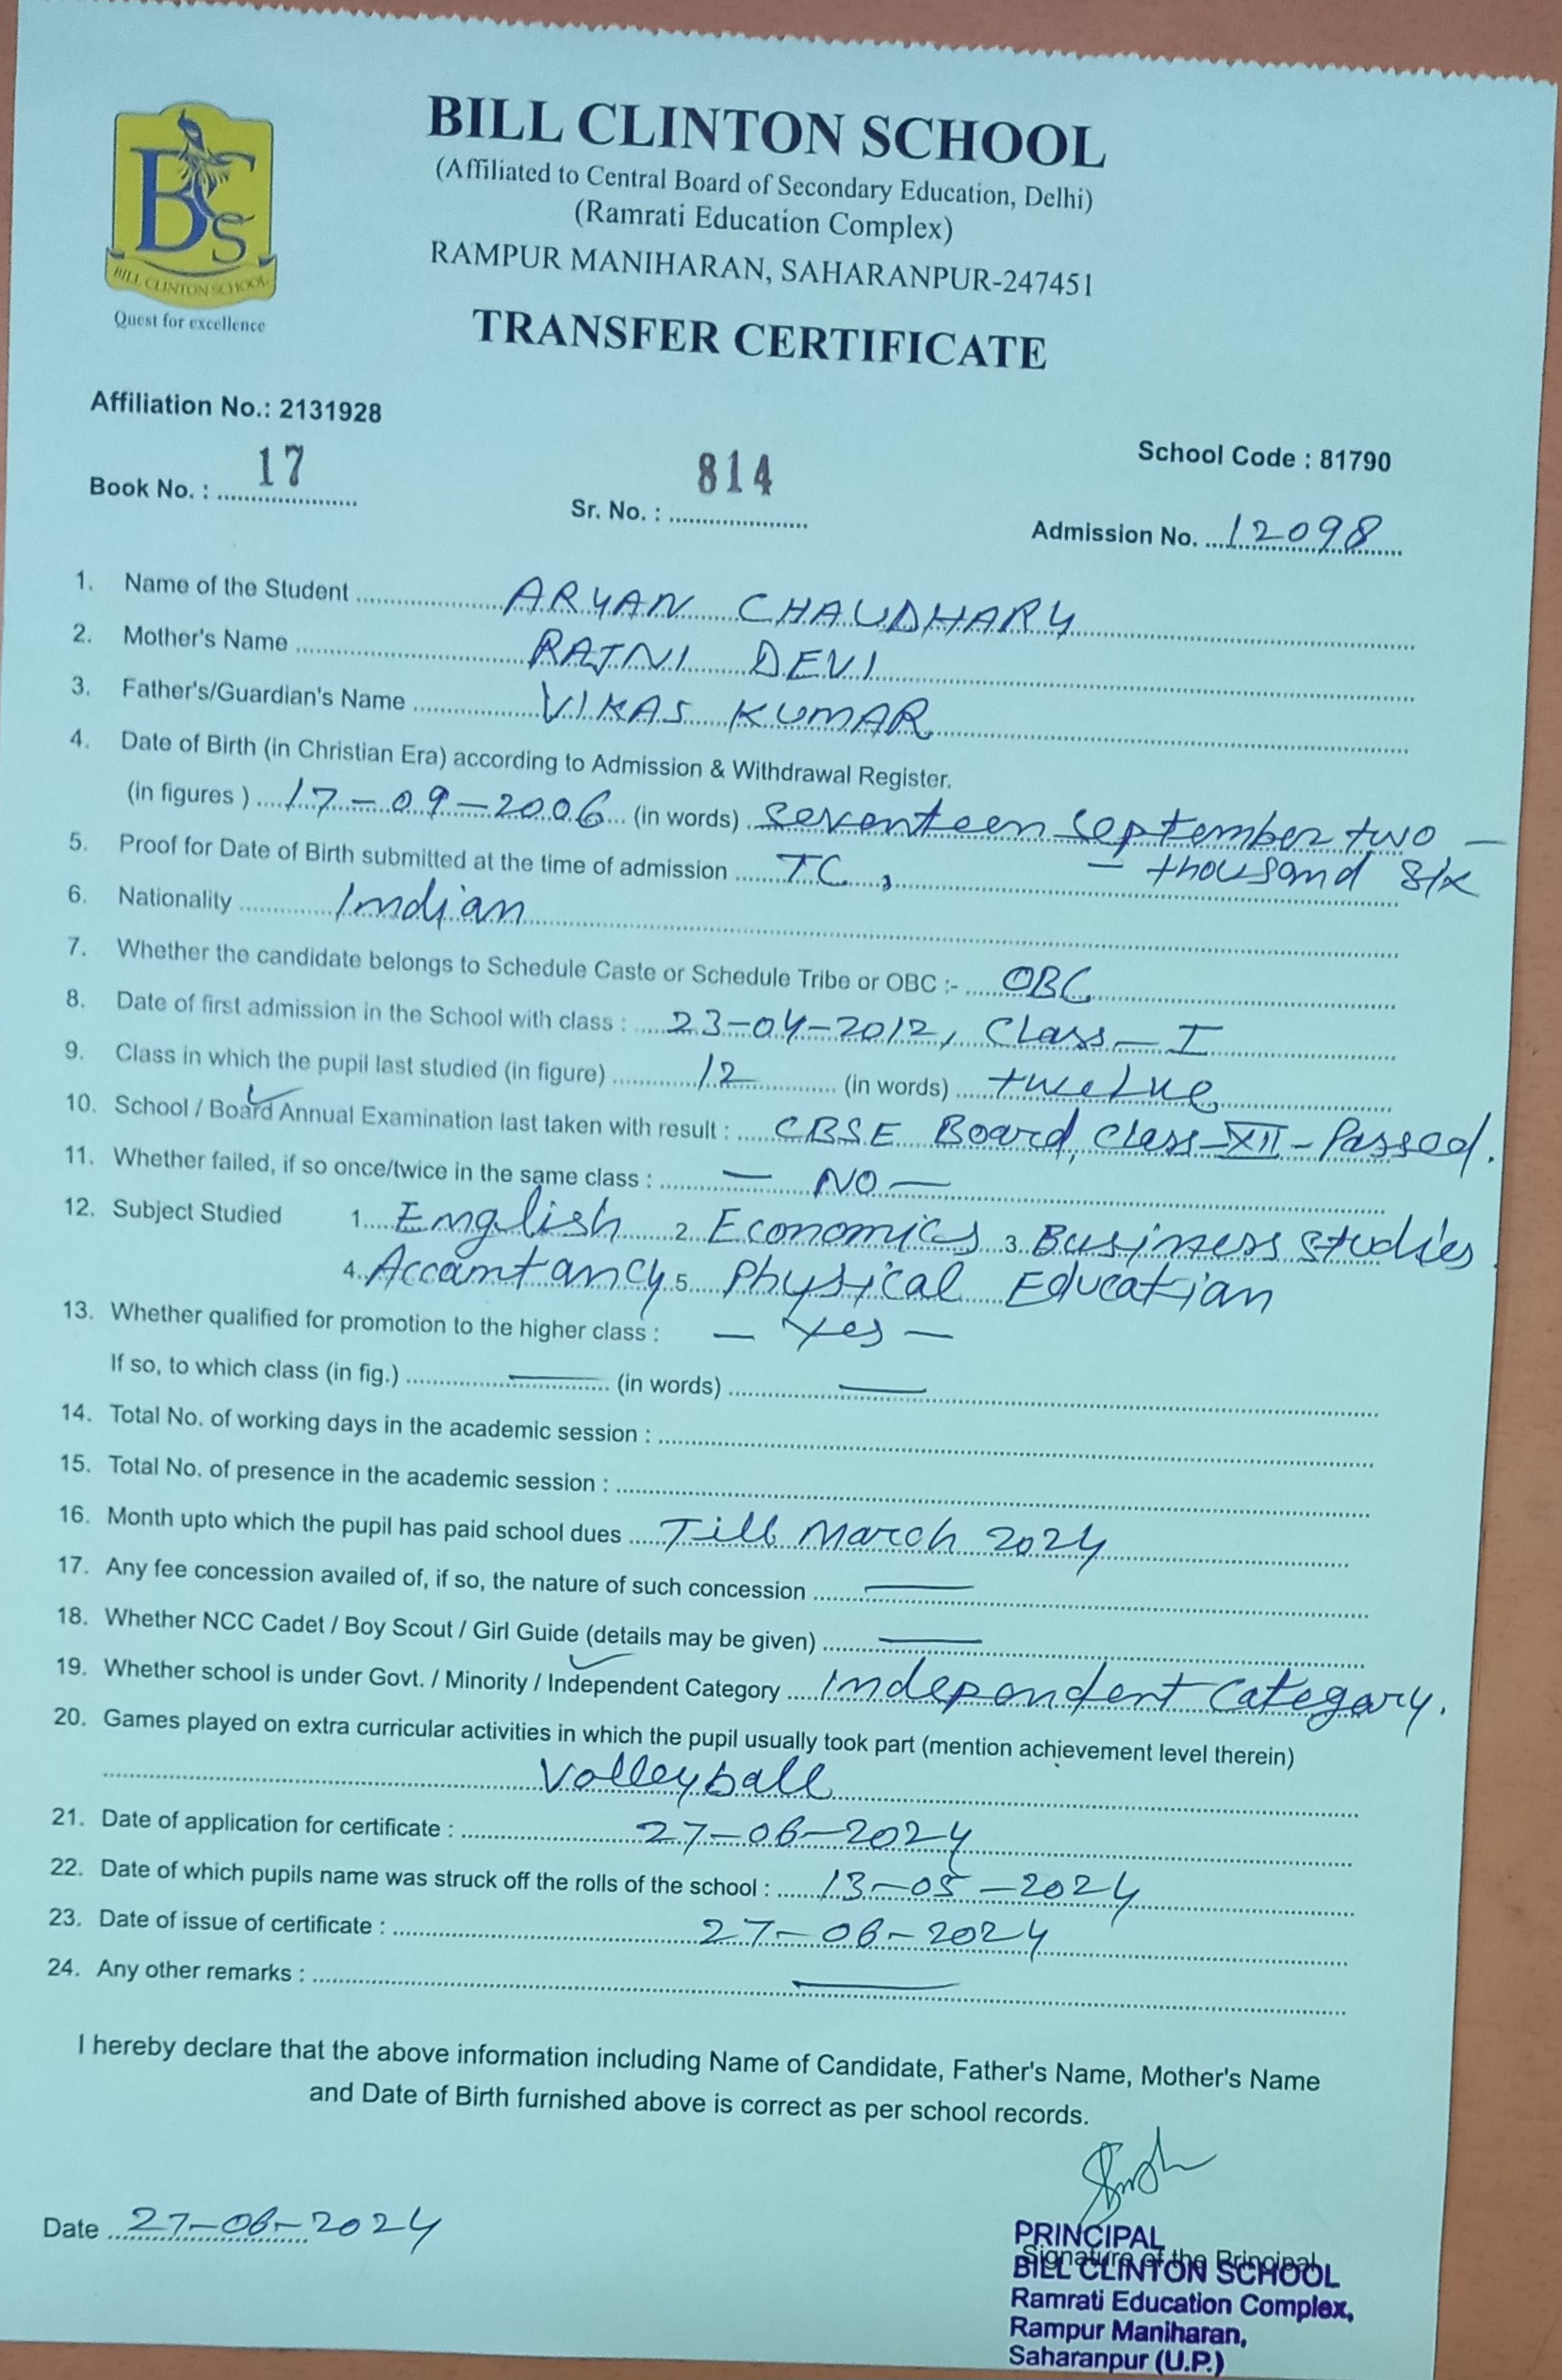 BCS
BILL CLINTON SCHOOL
Quest for excellence
BILL CLINTON SCHOOL
(Affiliated to Central Board of Secondary Education, Delhi)
(Ramrati Education Complex)
RAMPUR MANIHARAN, SAHARANPUR-247451
TRANSFER CERTIFICATE
Affiliation No.: 2131928
School Code : 81790
Book No. : 17 Sr. No. : 814 Admission No. 12098
1. Name of the Student ARYAN CHAUDHARY
2. Mother's Name RAJNI DEVI
3. Father's/Guardian's Name VIKAS KUMAR
4. Date of Birth (in Christian Era) according to Admission & Withdrawal Register.
(in figures ) 17-09-2006 (in words) Seventeen September two -
- thousand six
5. Proof for Date of Birth submitted at the time of admission TC,
6. Nationality Indian
7. Whether the candidate belongs to Schedule Caste or Schedule Tribe or OBC :- OBC
8. Date of first admission in the School with class : 23-04-2012, Class - I
9. Class in which the pupil last studied (in figure) 12 (in words) twelve
10. School / Board Annual Examination last taken with result : CBSE Board, Class-XII-Passed.
11. Whether failed, if so once/twice in the same class : - NO -
12. Subject Studied 1. English 2. Economics 3. Business Studies
4. Accountancy 5. Physical Education
13. Whether qualified for promotion to the higher class : - Yes -
If so, to which class (in fig.) — (in words) —
14. Total No. of working days in the academic session :
15. Total No. of presence in the academic session :
16. Month upto which the pupil has paid school dues Till March 2024
17. Any fee concession availed of, if so, the nature of such concession —
18. Whether NCC Cadet / Boy Scout / Girl Guide (details may be given) —
19. Whether school is under Govt. / Minority / Independent Category Independent Category.
20. Games played on extra curricular activities in which the pupil usually took part (mention achievement level therein)
Volleyball
21. Date of application for certificate : 27-06-2024
22. Date of which pupils name was struck off the rolls of the school : 13-05-2024
23. Date of issue of certificate : 27-06-2024
24. Any other remarks : —
I hereby declare that the above information including Name of Candidate, Father's Name, Mother's Name
and Date of Birth furnished above is correct as per school records.
Date 27-06-2024
PRINCIPAL
Signature of the Principal
BILL CLINTON SCHOOL
Ramrati Education Complex,
Rampur Maniharan,
Saharanpur (U.P.)